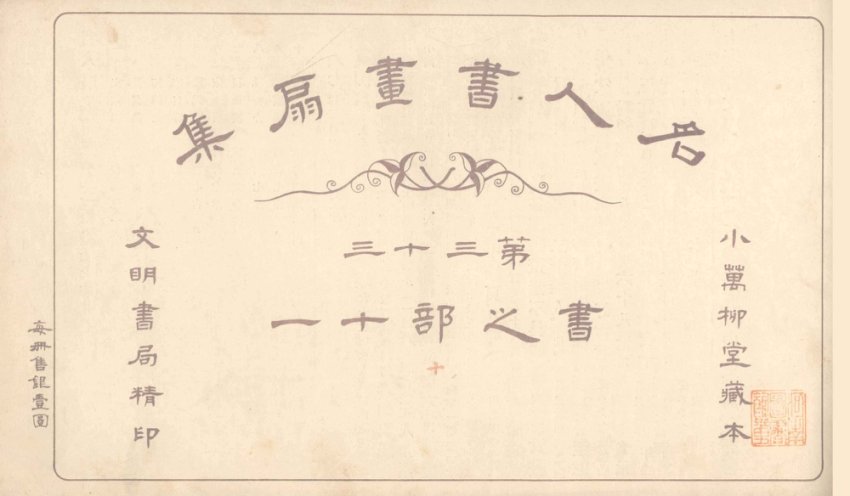 名人書畫扇集
第三十三
書之部十一
小萬柳堂藏本
文明書局精印
每冊售銀壹圓
十